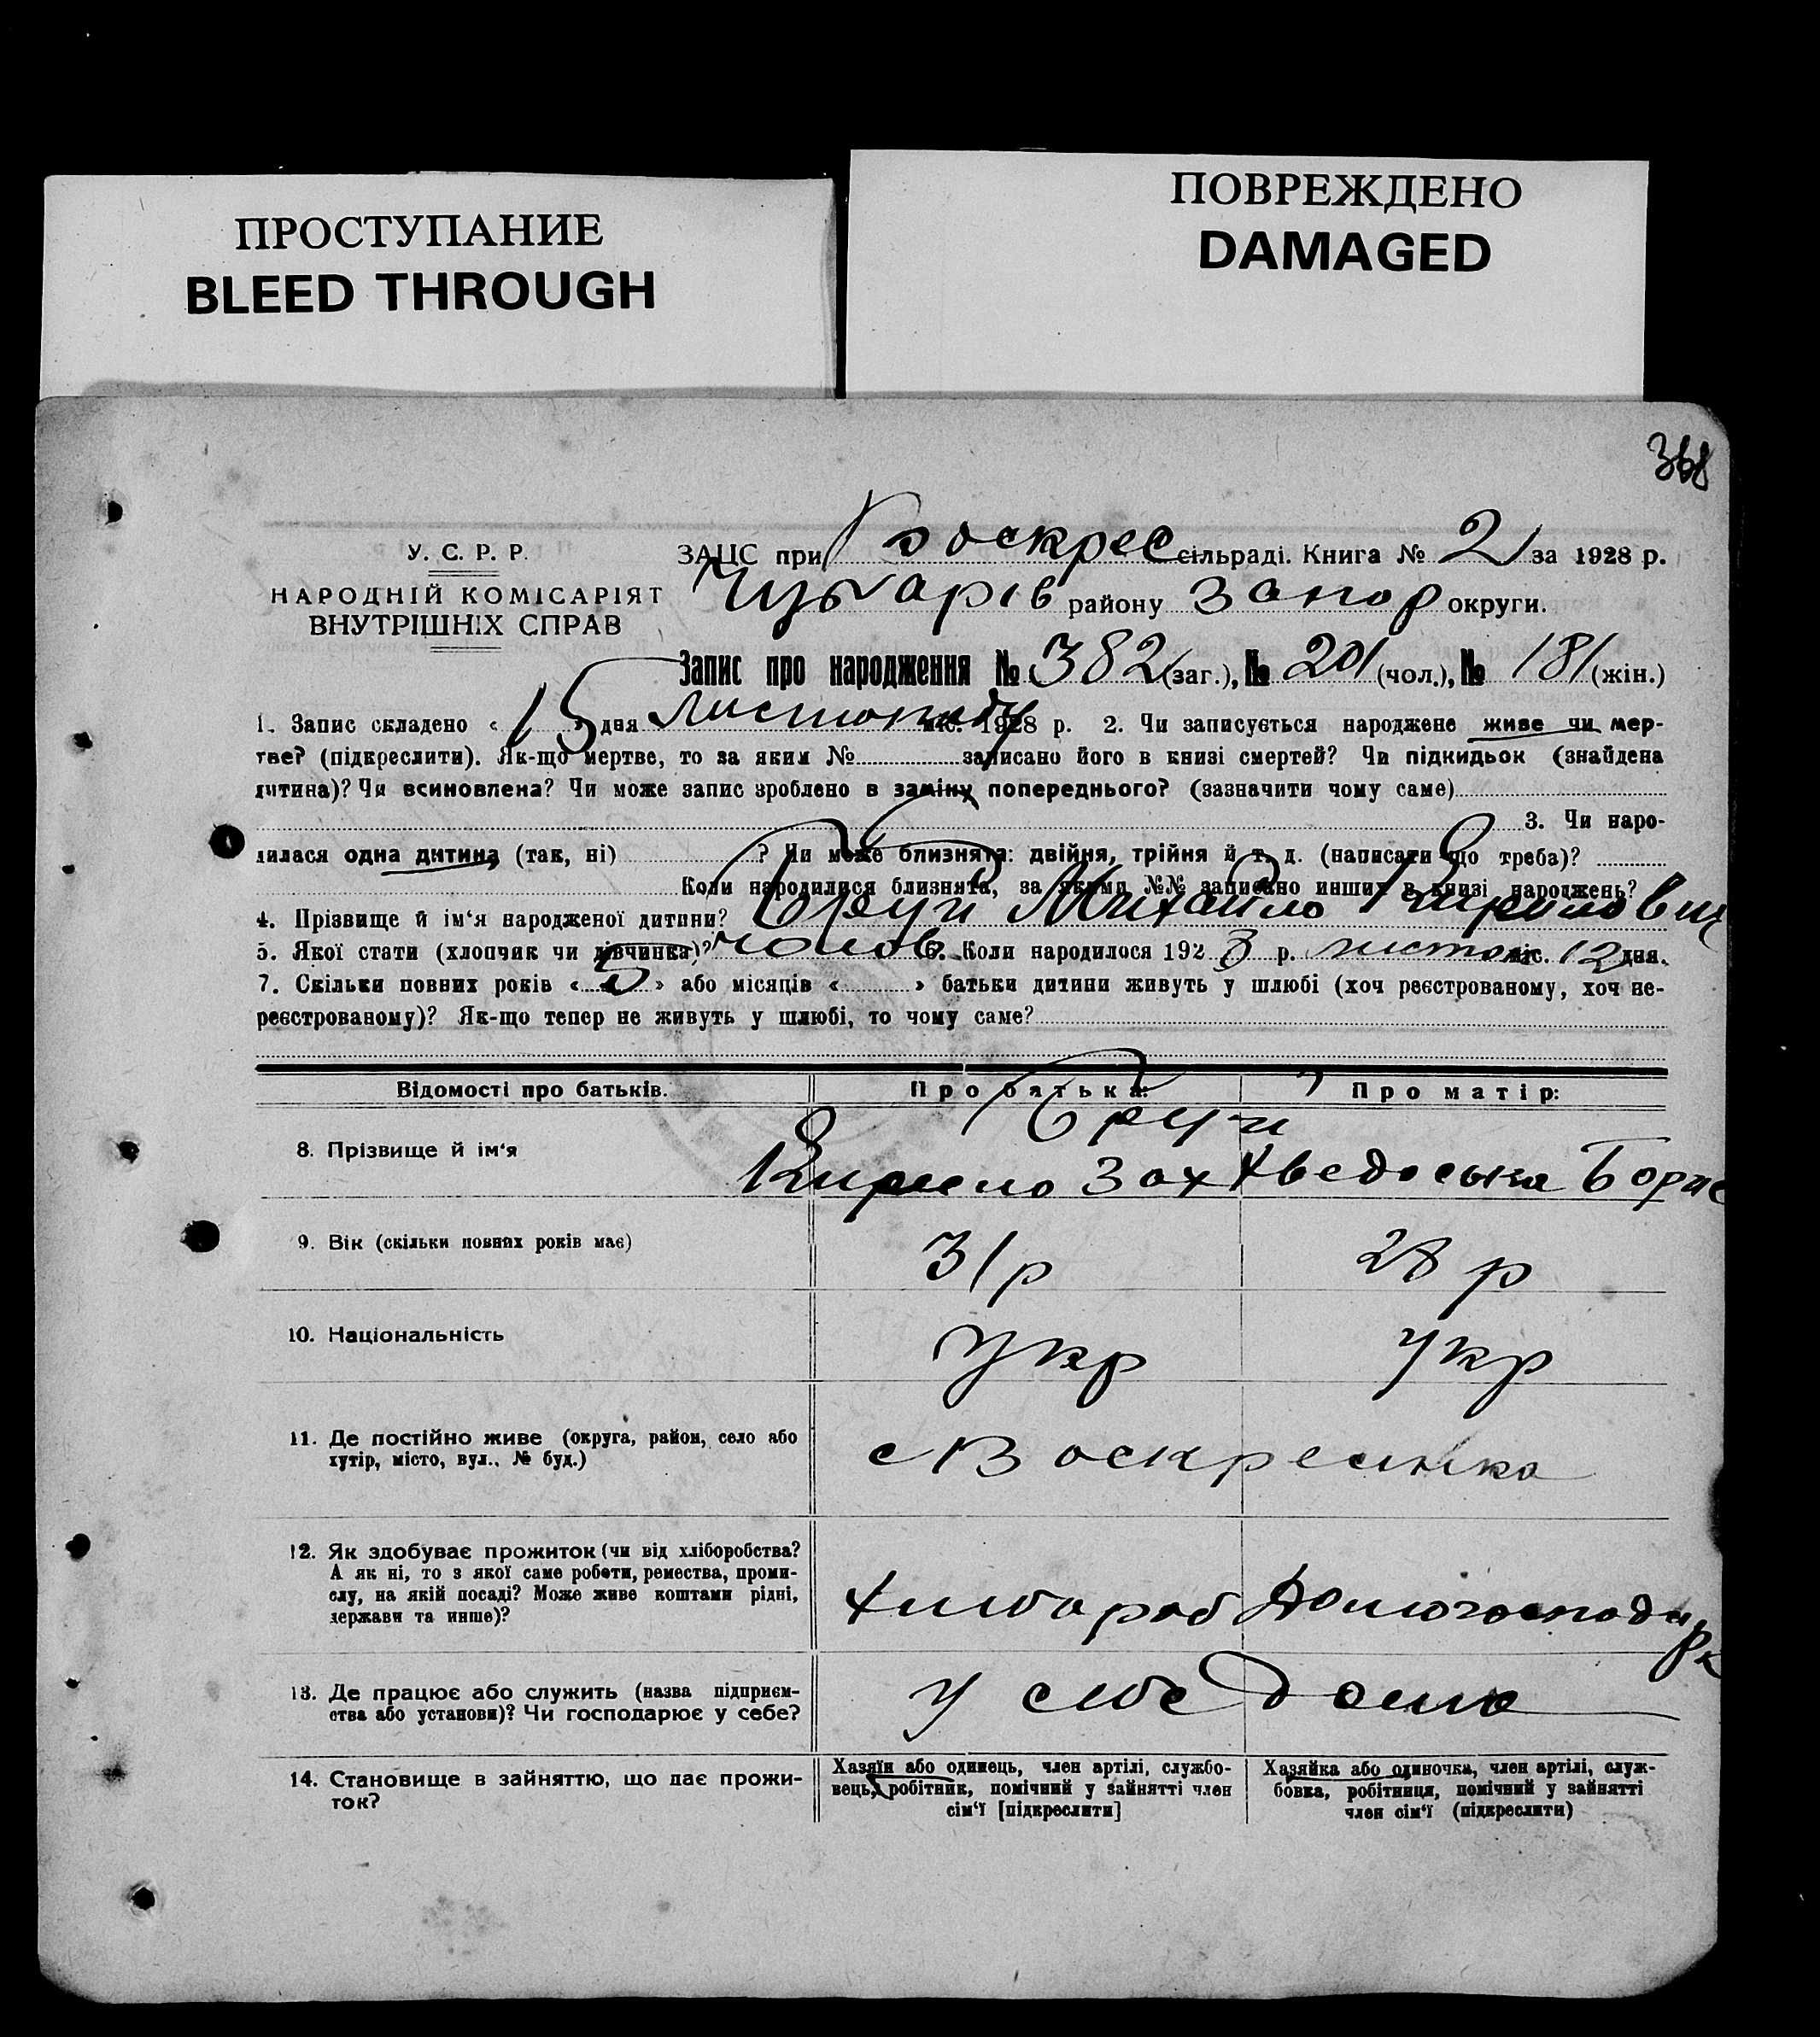 ПРОСТУПАНИЕ
BLEED THROUGH
ПОВРЕЖДЕНО
DAMAGED
368
У. С. Р. Р.
НАРОДНІЙ КОМІСАРІЯТ
ВНУТРІШНІХ СПРАВ
ЗАЦС при Воскрес сільраді. Книга № 2 за 1928 р.
Чубарів району Запор округи.
Запис про народження № 382 (заг.), № 201 (чол.), № 181 (жін.)
1. Запис складено « 15 » дня листопаду міс. 1928 р. 2. Чи записується народжене живе чи мер-
тве? (підкреслити). Як-що мертве, то за яким № записано його в книзі смертей? Чи підкидьок (знайдена
дитина)? Чи всиновлена? Чи може запис зроблено в заміну попереднього? (зазначити чому саме)
3. Чи наро-
дилася одна дитина (так, ні) ? Чи може близнята: двійня, трійня й т. д. (написати що треба)?
Коли народилися близнята, за якими №№ записано инших в книзі народжень?
4. Прізвище й ім‘я народженої дитини? Михайло Кирилович
5. Якої стати (хлопчик чи дівчинка)? чолов 6. Коли народилося 1928 р. листоп міс. 12 дня.
7. Скільки повних років « 5 » або місяців « » батьки дитини живуть у шлюбі (хоч реєстрованому, хоч не-
реєстрованому)? Як-що тепер не живуть у шлюбі, то чому саме?
Відомості про батьків. Про батька: Про матір:
8. Прізвище й ім‘я
Кирило Зах Хведоська Борис
9. Вік (скільки повних років має) 31 р 28 р
10. Національність Укр Укр
11. Де постійно живе (округа, район, село або
хутір, місто, вул., № буд.) с Воскресинка
12. Як здобуває прожиток (чи від хліборобства?
А як ні, то з якої саме роботи, ремества, проми-
слу, на якій посаді? Може живе коштами рідні,
держави та инше)? Хлібороб Домогосподарк
13. Де працює або служить (назва підприєм-
ства або установи)? Чи господарює у себе? у себе дома
14. Становище в зайняттю, що дає прожи-
ток?
Хазяїн або одинець, член артілі, службо-
вець, робітник, помічний у зайнятті член
сім‘ї [підкреслити]
Хазяйка або одиночка, член артілі, служ-
бовка, робітниця, помічний у зайнятті
член сім‘ї (підкреслити)